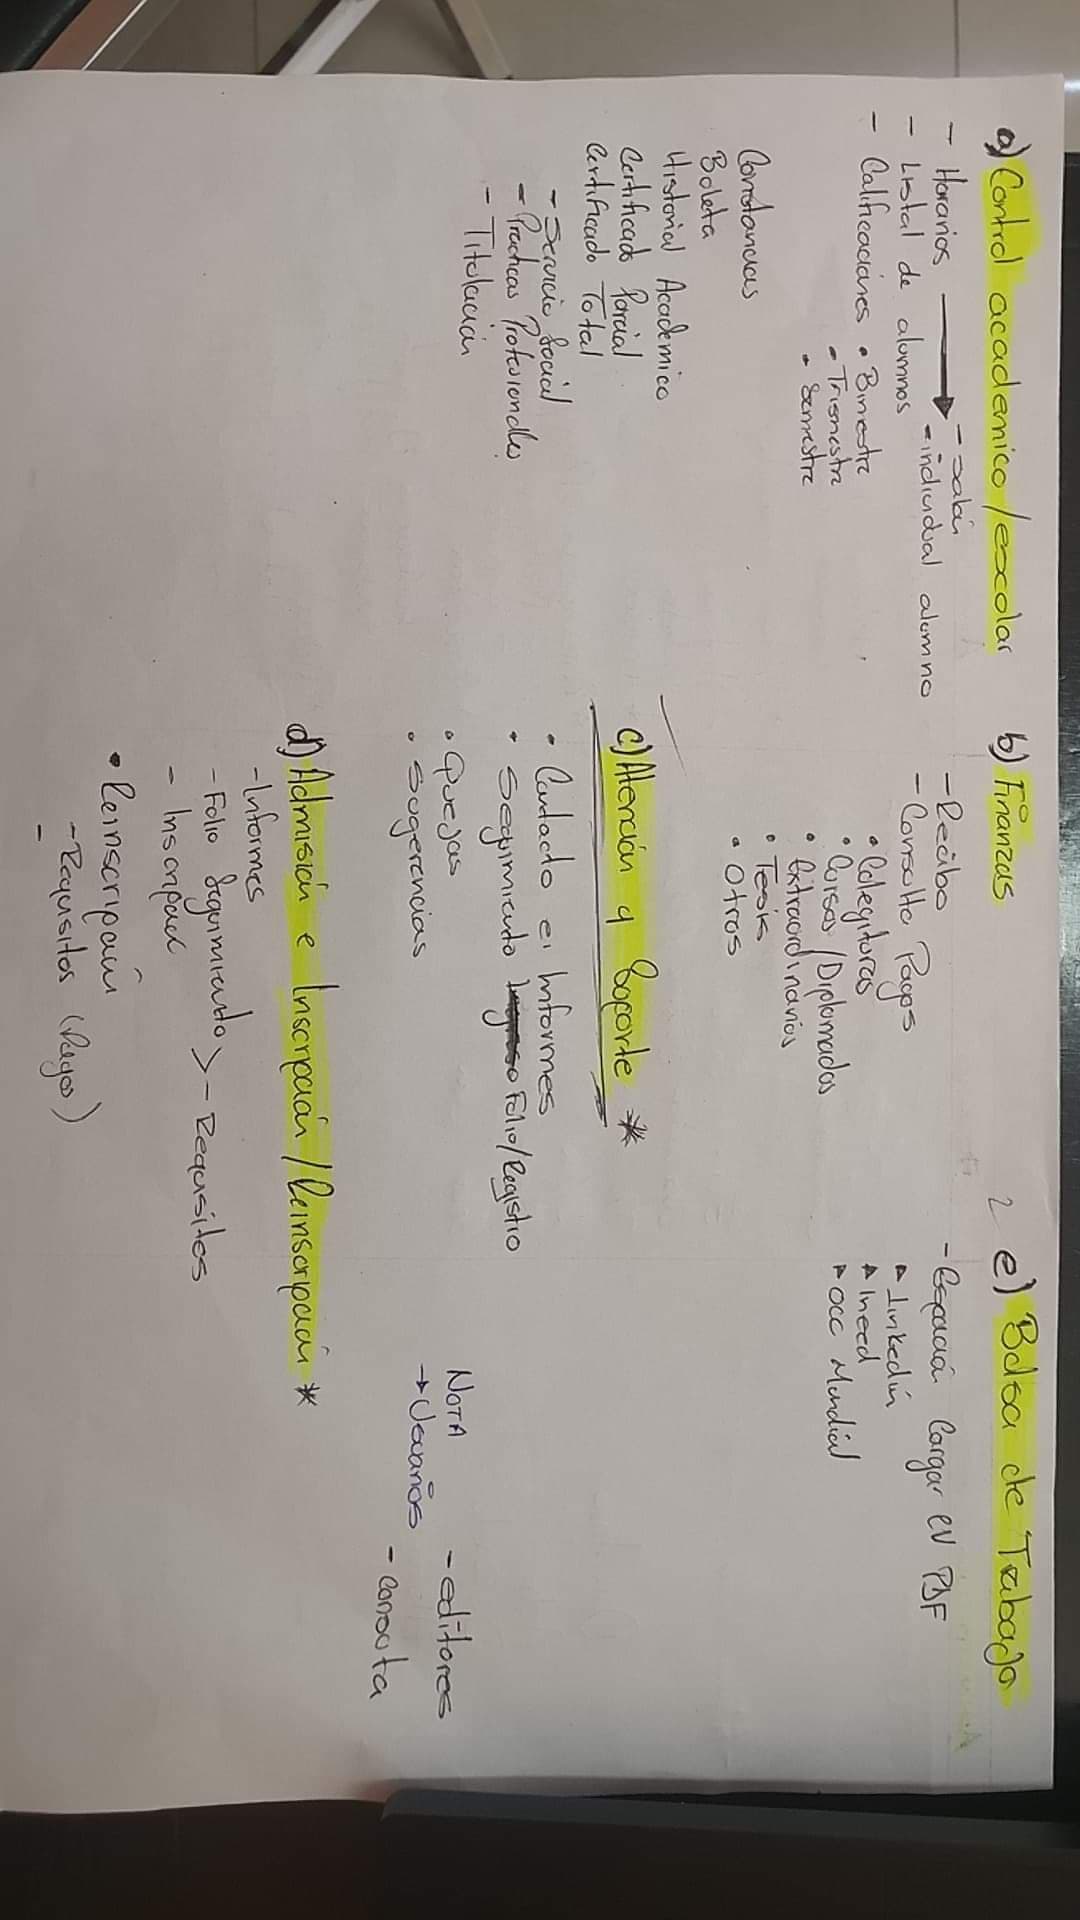 a) Control academico/escolar
- Horarios → - salón
- individual alumno
- Listal de alumnos
- Calificaciones • Bimestre
• Trismestre
• Semestre
Constancias
Boleta
Historial Academico
Certificado Parcial
Certificado Total
- Servicio Social
- Practicas Profesionales
- Titulación
b) Finanzas
- Recibo
- Consulta Pagos
• Colegituras
• Cursos/Diplomados
• Extraordinarios
• Tesis
• Otros
c) Atención y Soporte *
• Contacto e Informes
• Seguimiento Folio/Registro
• Quejas
• Sugerencias
d) Admisión e Inscripción/Reinscripción *
- Informes
- Folio Seguimiento > - Requisitos
- Inscripció
• Reinscripción
- Requisitos (Pagos)
-
2 e) Bolsa de Trabajo
- Espació Cargar CV PDF
▸ Linkedin
▸ Ineed
▸ OCC Mundial
NOTA
→ Usuarios
- editores
- consulta